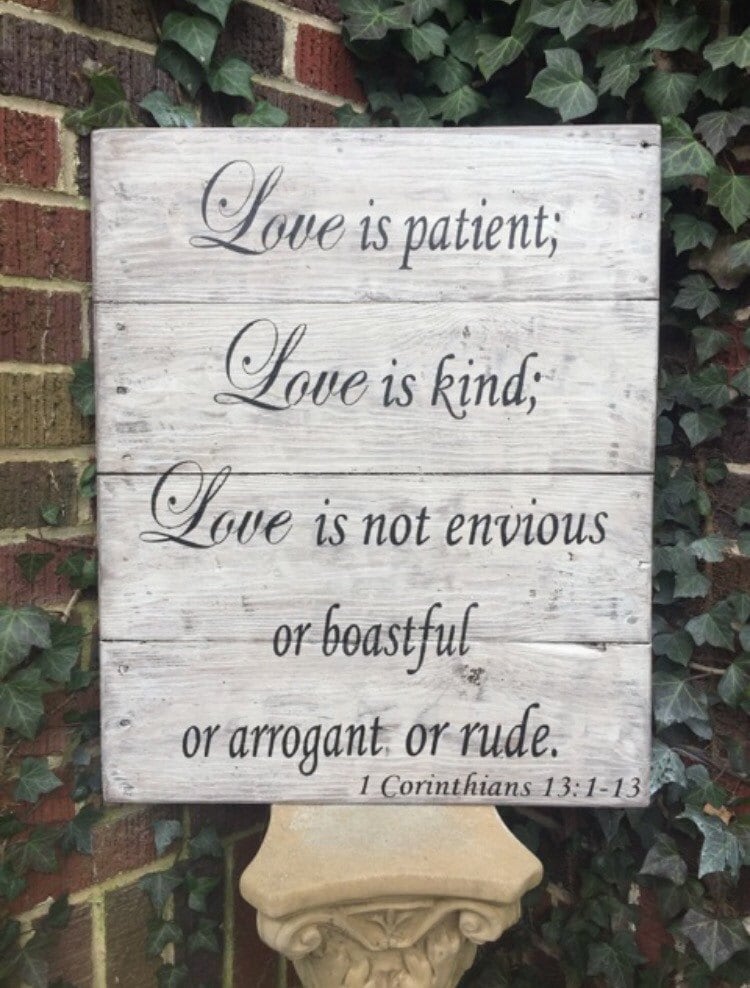 Love is patient;
Love is kind;
Love is not envious
or boastful
or arrogant or rude.
1 Corinthians 13:1-13